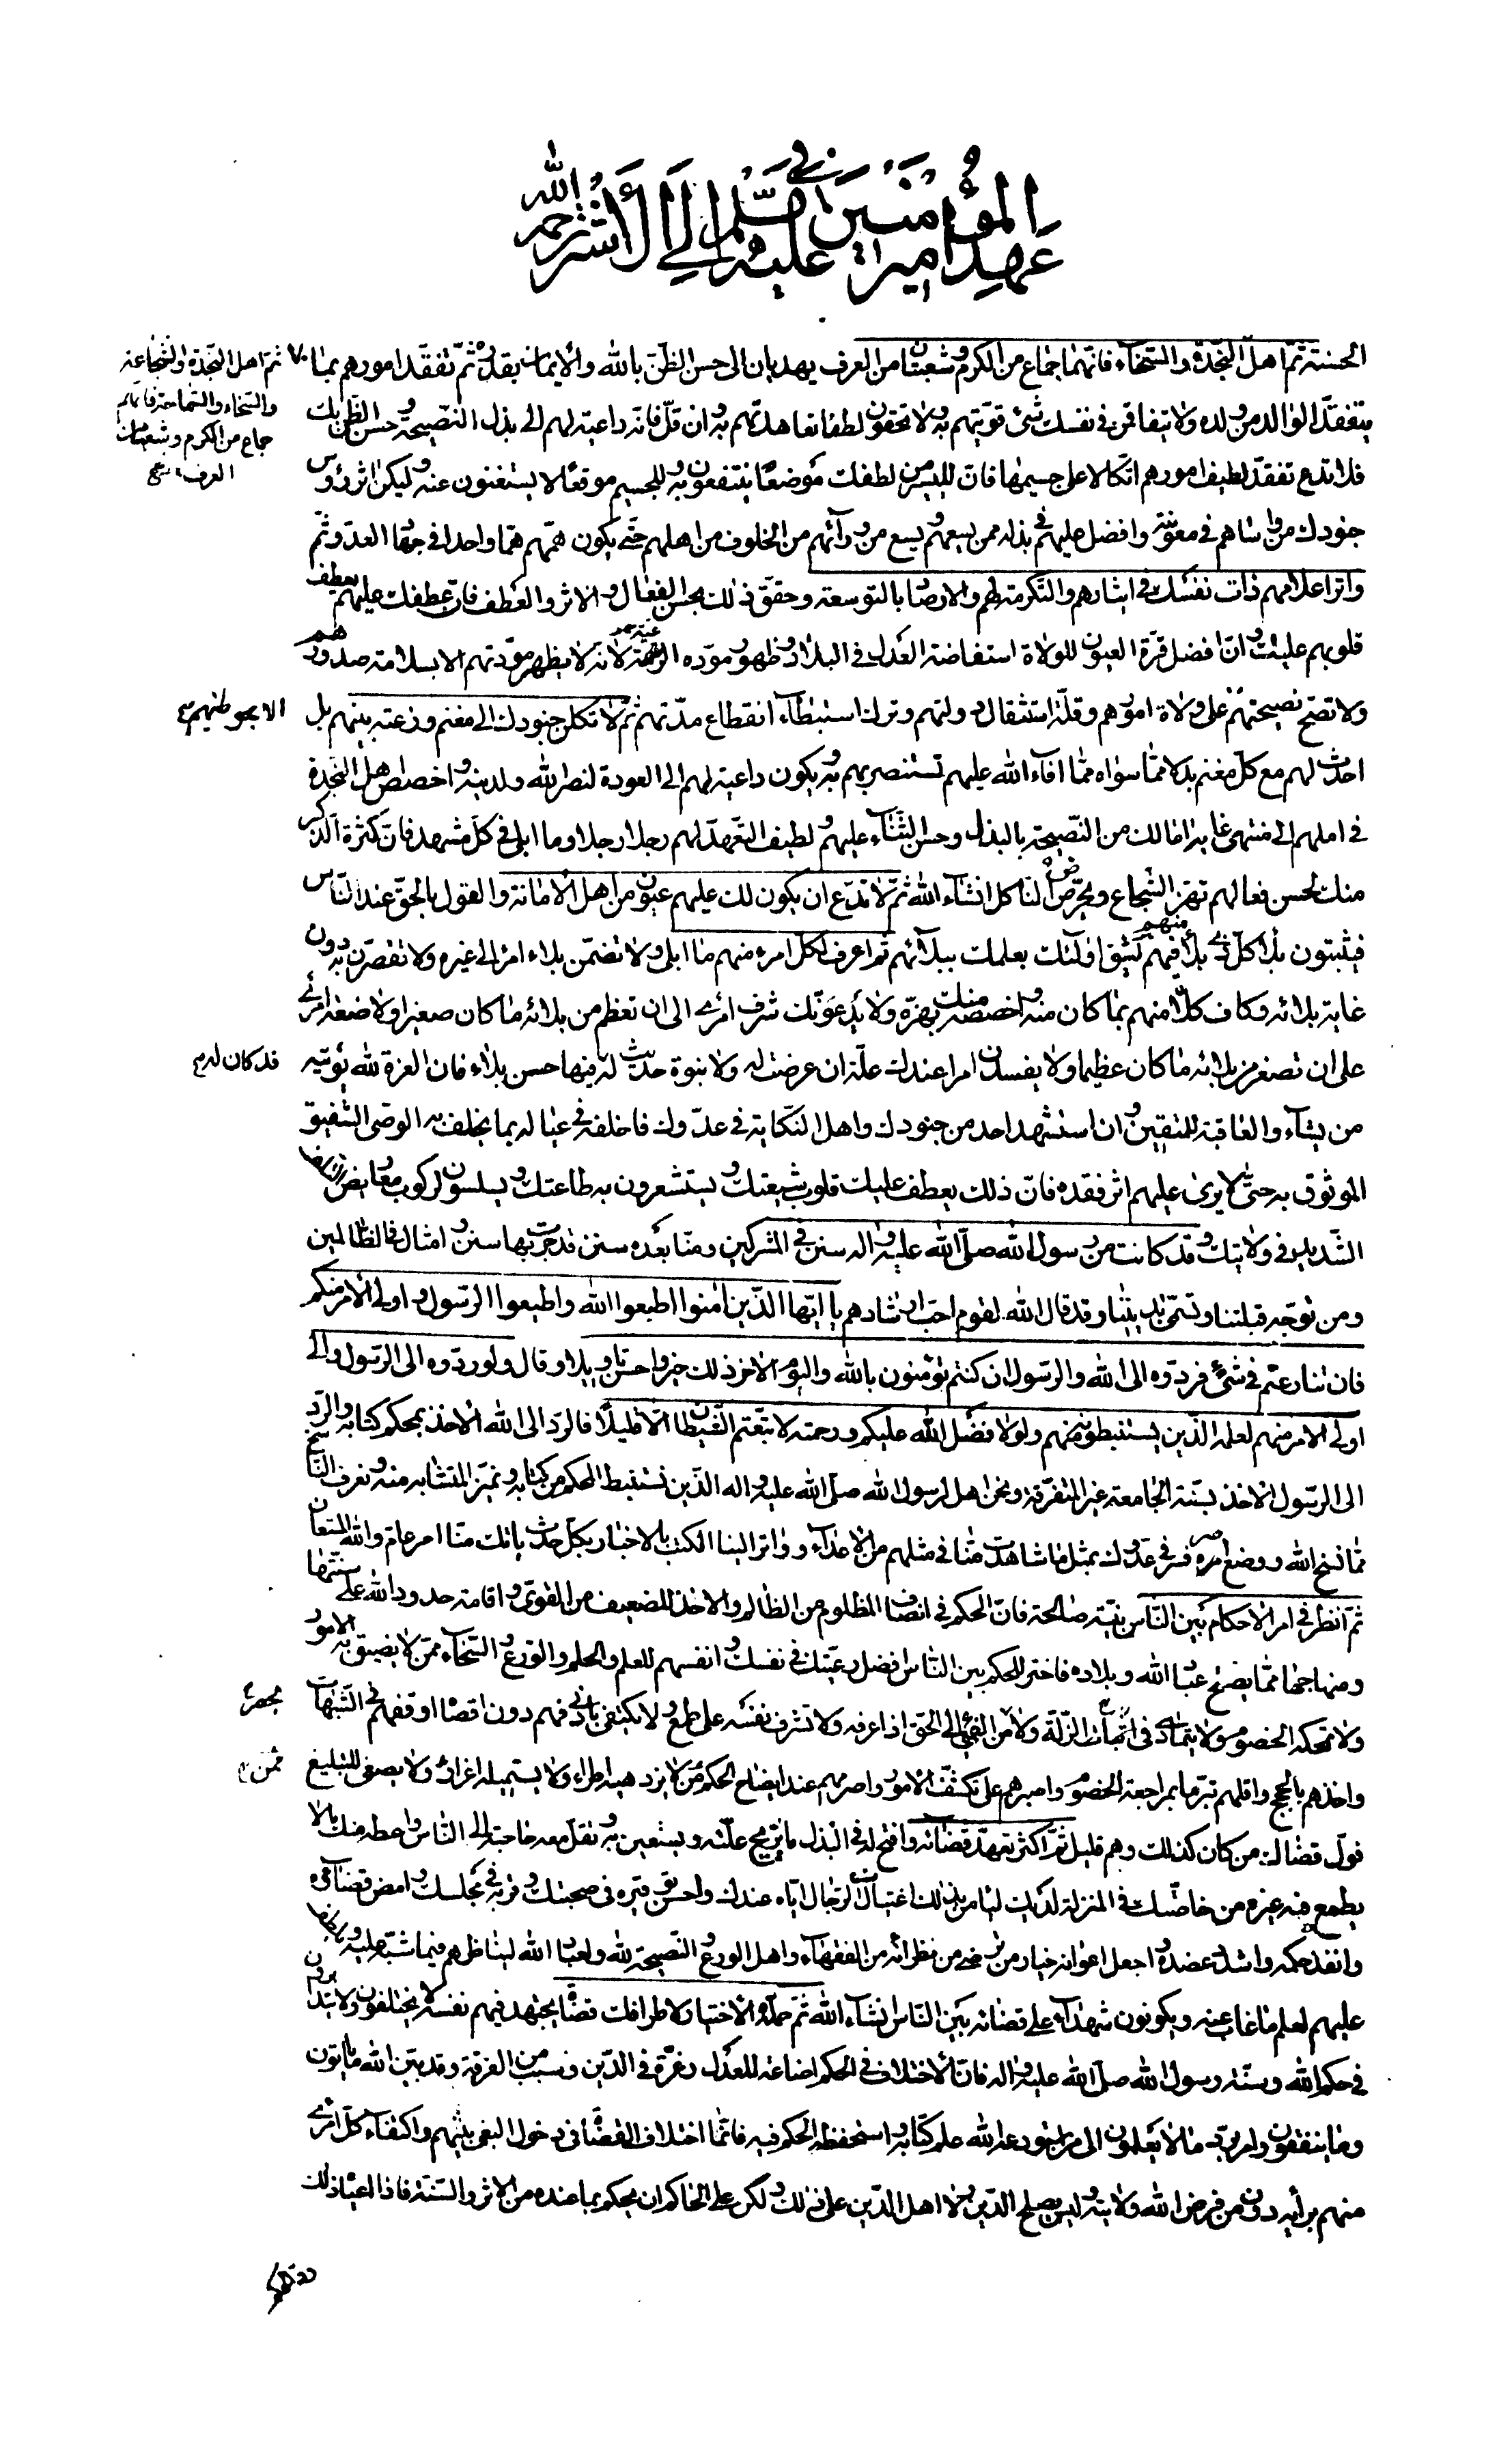 في عهد امير المؤمنين عليه السلام الى الأشتر رحمه الله
الحسنة ثم اهل النجدة والسخاء فانهما جماع من الكرم وشعبتان من العرف يهديان الى حسن الظن بالله والايمان بقدره ثم تفقد امورهم بما
يتفقد الوالد من ولده ولا يتفاقمن في نفسك شئ قويتهم به ولا تحقرن لطفا تعاهدتهم به وان قل فانه داعية لهم الى بذل النصيحة وحسن الظن بك
فلا تدع تفقد لطيف امورهم اتكالا على جسيمها فان لليسير من لطفك موضعا ينتفعون به وللجسيم موقعا لا يستغنون عنه وليكن اثر رؤس
جنودك من واساهم في معونته وافضل عليهم في بذله ممن يسعهم ويسع من ورآئهم من الخلوف من اهلهم حتى يكون همهم هما واحدا في جهاد العدو ثم
واتر اعلامهم ذات نفسك في ايثارهم والتكرمة لهم والارصاد بالتوسعة وحقق ذلك بحسن الفعال والاثر والعطف فان عطفك عليهم يعطف
قلوبهم عليك وان افضل قرة العيون للولاة استفاضة العدل في البلاد وظهور مودة الرعية لانه لا يظهر مودتهم الا بسلامة صدورهم
ولا تصح نصيحتهم على ولاة امورهم وقلة استثقال دولتهم وترك استبطاء انقطاع مدتهم ثم لا تكل جنودك الى مغنم وزعته بينهم بل
احدث لهم مع كل مغنم بدلا مما سواه مما افاء الله عليهم تستنصر بهم به ويكون داعية لهم الى العودة لنصر الله ولدينه واخصص اهل النجدة
في املهم الى منتهى غاية امالك من النصيحة بالبذل وحسن الثناء عليهم ولطيف التعهد لهم رجلا رجلا وما ابلى في كل مشهد فان كثرة الذكر
منك لحسن فعالهم تهز الشجاع وتحرض الناكل انشاء الله ثم لا تدع ان يكون لك عليهم عيون من اهل الامانة والقول بالحق عند الناس
فيثبتون بلاء كل ذي بلاء منهم ليثق اولئك بعلمك ببلآئهم ثم اعرف لكل امرء منهم ما ابلى ولا تضمن بلاء امرئ الى غيره ولا تقصرن به دون
غاية بلائه وكاف كلا منهم بما كان منه واخصصه منك بهزه ولا يدعونك شرف امرئ الى ان تعظم من بلائه ما كان صغيرا ولا ضعة امرئ
على ان تصغر من بلائه ما كان عظيما ولا يفسدن امرا عندك علة ان عرضت له ولا نبوة حديث له فيها حسن بلاء فان العزة لله يؤتيه
من يشاء والعاقبة للمتقين وان استشهد احد من جنودك واهل النكاية في عدوك فاخلفه في عياله بما يخلف به الوصى الشفيق
الموثوق به حتى لا يرى عليهم اثر فقده فان ذلك يعطف عليك قلوب شيعتك ويستشعرون به طاعتك ويسلسون لركوب معاريض التلف
الشديد في ولايتك وقد كانت من رسول الله صلى الله عليه واله سنن في المشركين ومنا بعده سنن قد جرت بها سنن وامثال في الظالمين
ومن توجه قبلتنا وتسمى بديننا وقد قال الله لقوم احب ارشادهم يا ايها الذين امنوا اطيعوا الله واطيعوا الرسول واولى الامر منكم
فان تنازعتم في شئ فردوه الى الله والرسول ان كنتم تؤمنون بالله واليوم الاخر ذلك خير واحسن تاويلا وقال ولو ردوه الى الرسول والى
اولى الامر منهم لعلمه الذين يستنبطونه منهم ولولا فضل الله عليكم ورحمته لاتبعتم الشيطان الا قليلا فالرد الى الله الاخذ بمحكم كتابه والرد
الى الرسول الاخذ بسنته الجامعة غير المتفرقة ونحن اهل رسول الله صلى الله عليه واله الذين نستنبط المحكم من كتابه ونميز المتشابه منه ونعرف الناسخ
مما نسخ الله ووضع اصره فسر في عدوك بمثل ما شاهدت منا في مثلهم من الاعداء وواتر الينا الكتب بالاخبار بكل حدث ياتك منا امر عام والله المستعان
ثم انظر في امر الاحكام بين الناس بنية صالحة فان الحكم في انصاف المظلوم من الظالم والاخذ للضعيف من القوى واقامة حدود الله على سنتها
ومنهاجها مما يصلح عباد الله وبلاده فاختر للحكم بين الناس افضل رعيتك في نفسك وانفسهم للعلم والحلم والورع والسخاء ممن لا يضيق به الامور
ولا تمحكه الخصوم ولا يتمادى في اثبات الزلة ولا من الفئ الى الحق اذا عرفه ولا تشرف نفسه على طمع ولا يكتفى بادنى فهم دون اقصاه اوقفهم في الشبهات
واخذهم بالحجج واقلهم تبرما بمراجعة الخصوم واصبرهم على تكشف الامور واصرمهم عند ايضاح الحكم من لا يزدهيه اطراء ولا يستميله اغراق ولا يصغى للتبليغ
فول قضاك من كان كذلك وهم قليل ثم اكثر تعهد قضائه وافتح له في البذل ما يزيح علته ويستعين به وتقل معه حاجته الى الناس واعطه منك ما لا
يطمع فيه غيره من خاصتك في المنزلة لديك ليامن بذلك اغتيال الرجال اياه عندك واحسن توقيره في صحبتك وقربه في مجلسك وامض قضاءه
وانفذ حكمه واشدد عضده واجعل اعوانه خيار من ترضى من نظرائه من الفقهاء واهل الورع والنصيحة لله ولعباد الله ليناظرهم فيما شبه عليه ويلطف
عليهم لعلم ما غاب عنه ويكونون شهداء على قضائه بين الناس انشاء الله ثم حملة الاختبار لاطرافك قضاة يجتهد فيهم نفسه لا يختلفون ولا يتدابرون
في حكم الله وسنة رسول الله صلى الله عليه واله فان الاختلاف في الحكم اضاعة للعدل وغرة في الدين وسبب من الفرقة وقد بين الله ما ياتون
وما ينفقون وامر برد ما لا يعلمون الى من استودعه الله علم كتابه واستحفظه الحكم فيه فانما اختلاف القضاة في دخول البغى بينهم واكتفاء كل امرئ
منهم برأيه دون من فرض الله ولايته وليس يصلح الدين ولا اهل الدين على ذلك ولكن على الحاكم ان يحكم بما عنده من الاثر والسنة فاذا اعياه ذلك
ثم اهل النجدة والشجاعة
والسخاء والسماحة فانهم
جماع من الكرم وشعب من
العرف
الا بحوطتهم
قد كان له